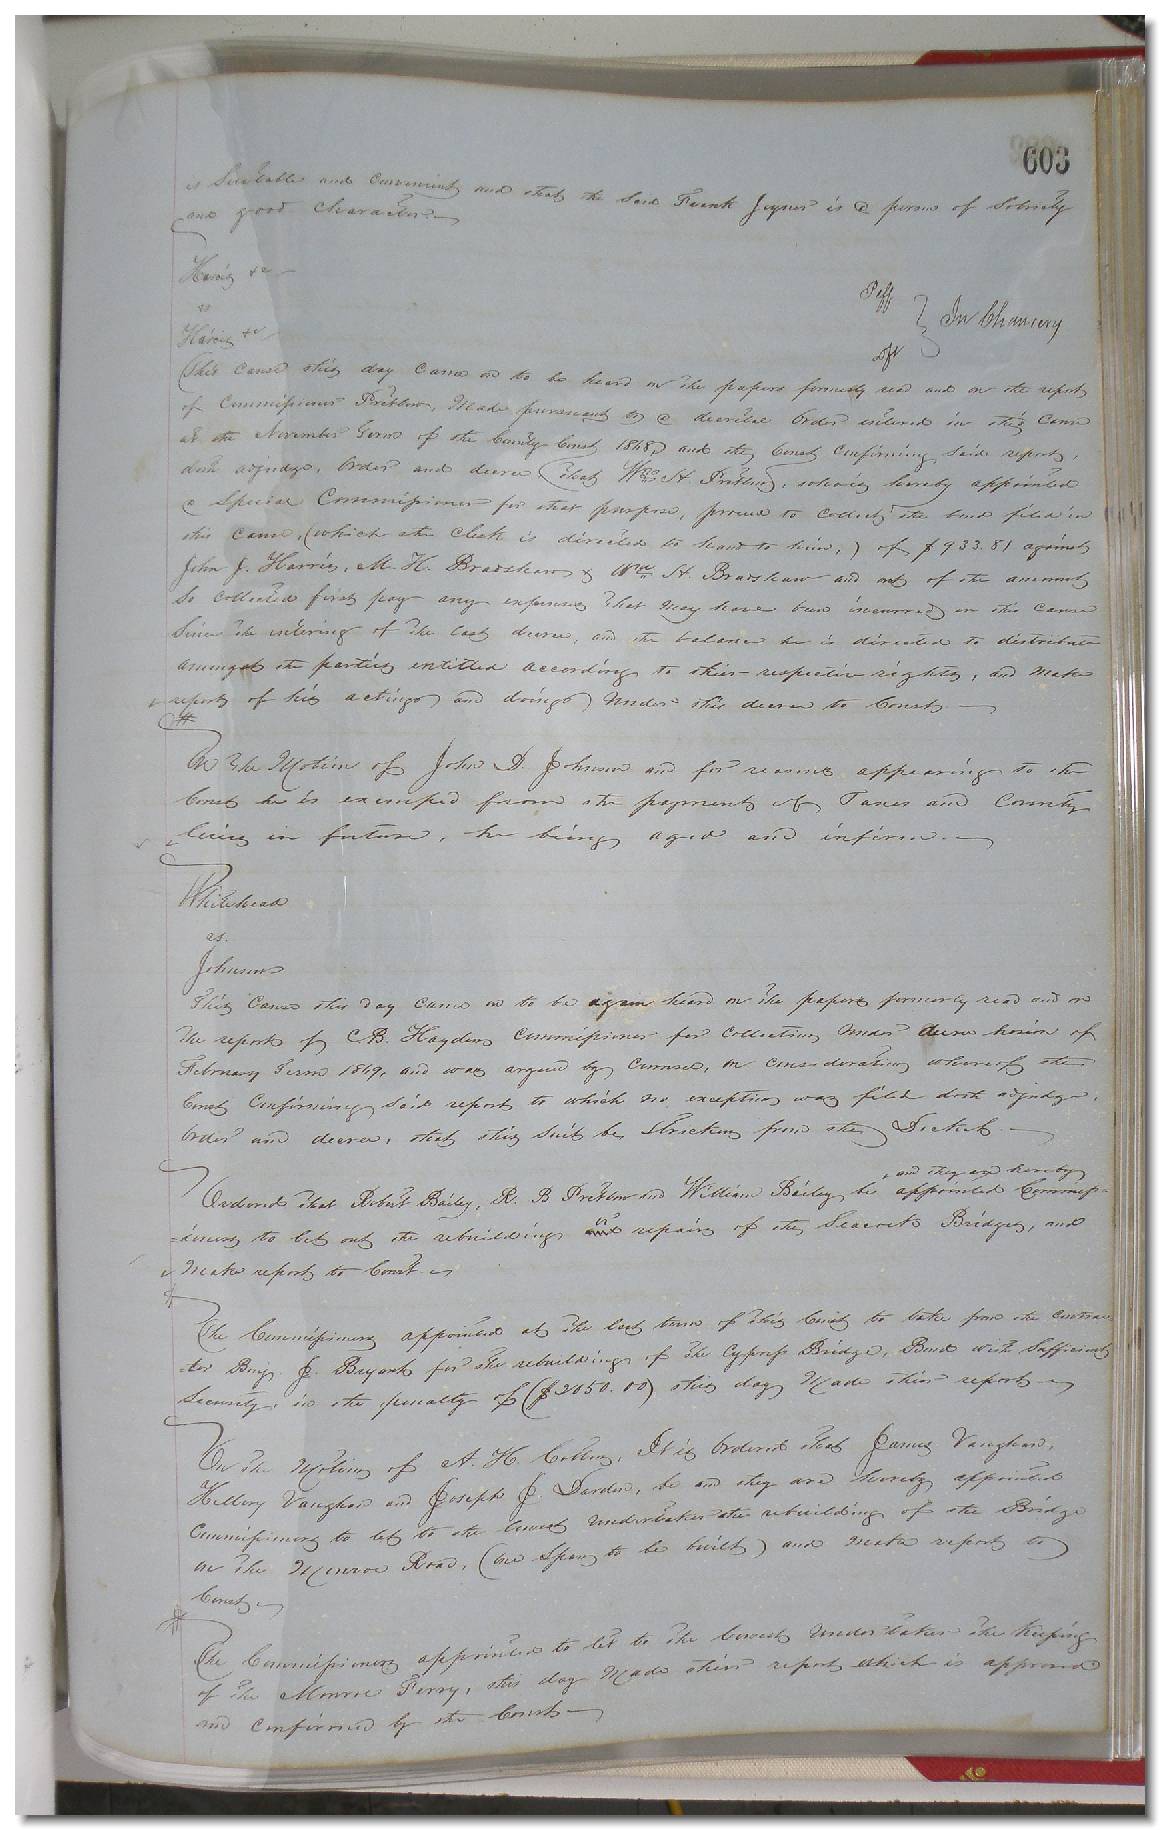 603
is Suitable and Convenient and that the Said Frank Joyner is a person of Sobriety
and good Character.
Harris &c
vs
Harris &c
Plff
In Chancery
Dft
This cause this day came on to be heard on the papers formerly read and on the report
of Commissioner Pretlow, Made pursuant to a decretal Order entered in this Cause
at the November Term of the County Court 1848, and the Court Confirming Said report,
doth adjudge, Order and decree that Wm H. Pretlow, who is hereby appointed
a Special Commissioner for that purpose, proceed to Collect the bond filed in
this cause, (which the Clerk is directed to hand to him,) of $933.81 against
John J. Harris, M. H. Bradshaw & Wm H. Bradshaw and out of the amount
So Collected first pay any expenses that may have been incurred in this cause
Since the entering of the last decree, and the balance he is directed to distribute
amongst the parties entitled according to their respective rights, and make
report of his actings and doings Under this decree to Court.
On the Motion of John D. Johnson and for reasons appearing to the
Court he is exempted from the payment of Taxes and County
levies in future, he being aged and infirm.
Whitehead
vs.
Johnson
This Cause this day Came on to be again heard on the papers formerly read and on
the report of C.B. Hayden Commissioner for Collecting Under decree herein of
February Term 1849, and was argued by Counsel, on Consideration whereof the
Court Confirming Said report to which no exception was filed doth adjudge,
Order and decree, that this Suit be Stricken from the Docket.
and they are hereby
Ordered that Robert Bailey, R. B Pretlow and William Bailey be appointed Commiss-
=ioners to let out the rebuilding or repairs of the Seacock Bridges, and
Make report to Court
The Commissioners appointed at the last term of this Court to take from the contrac
tor Benj. J. Bryant for the rebuilding of the Cypress Bridge, Bond with Sufficient
Security, in the penalty of ($2050.00) this day Made their report
On the Motion of A. H. Collins, It is Ordered that James Vaughan,
Hillory Vaughan and Joseph J. Darden, be and they are hereby appointed
Commissioners to let to the lowest undertaker the rebuilding of the Bridge
on the Monroe Road, (one Span to be built) and make report to
Court
The Commissioners appointed to let to the lowest Undertaker the Keeping
of the Monroe Ferry, this day Made their report which is approved
and Confirmed by the Court